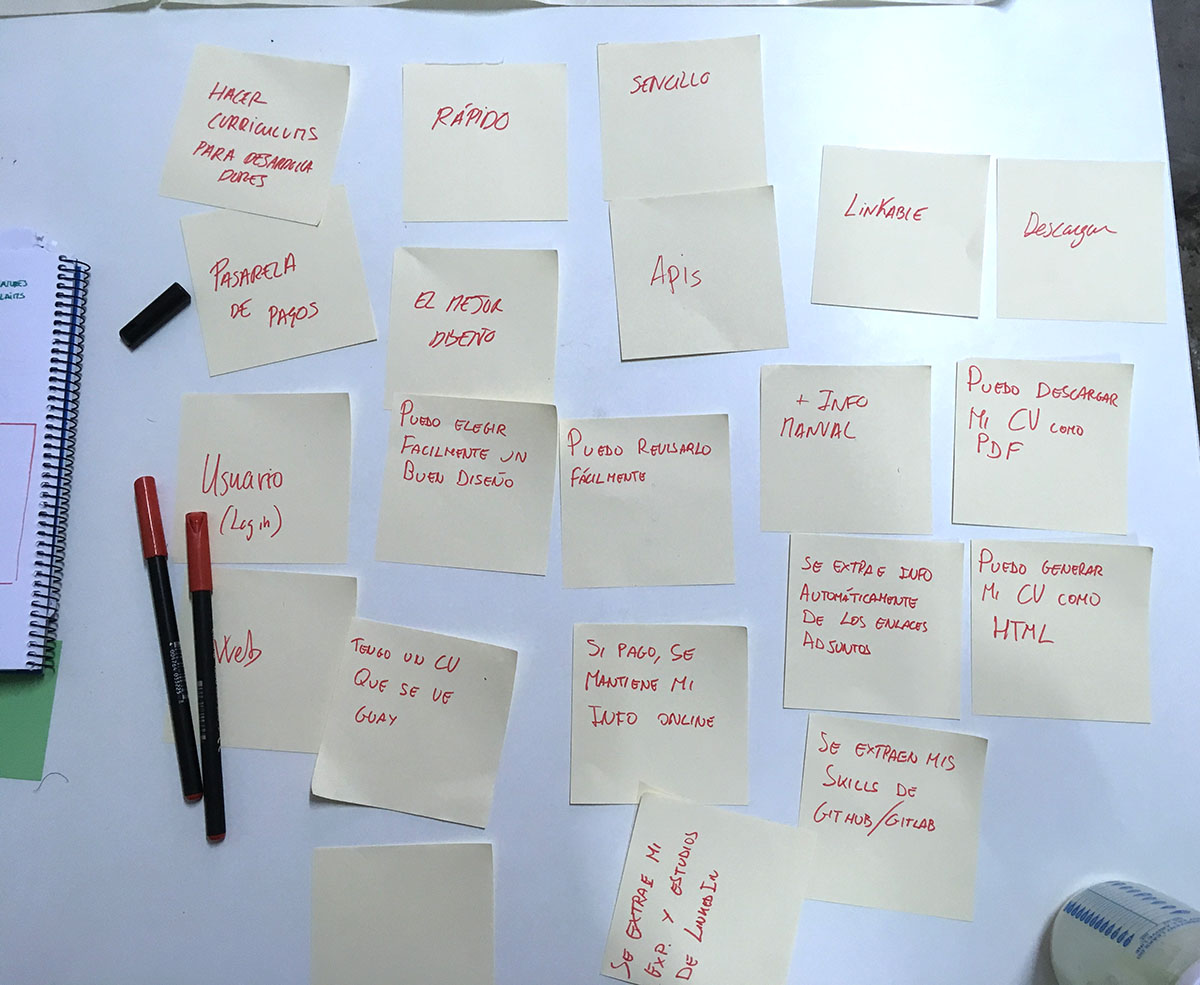 HACER
CURRICULUMS
PARA DESARROLLA
DORES
RÁPIDO
SENCILLO
LINKABLE
Descargar
PASARELA
DE PAGOS
EL MEJOR
DISEÑO
Apis
Usuario
(Login)
PUEDO ELEGIR
FACILMENTE UN
BUEN DISEÑO
PUEDO REVISARLO
FÁCILMENTE
+ INFO
MANUAL
PUEDO DESCARGAR
MI CV COMO
PDF
Web
TENGO UN CV
QUE SE VE
GUAY
SI PAGO, SE
MANTIENE MI
INFO ONLINE
SE EXTRAE INFO
AUTOMÁTICAMENTE
DE LOS ENLACES
ADJUNTOS
PUEDO GENERAR
MI CV COMO
HTML
SE EXTRAEN MIS
SKILLS DE
GITHUB/GITLAB
SE EXTRAE MI
EXP. Y ESTUDIOS
DE LINKEDIN